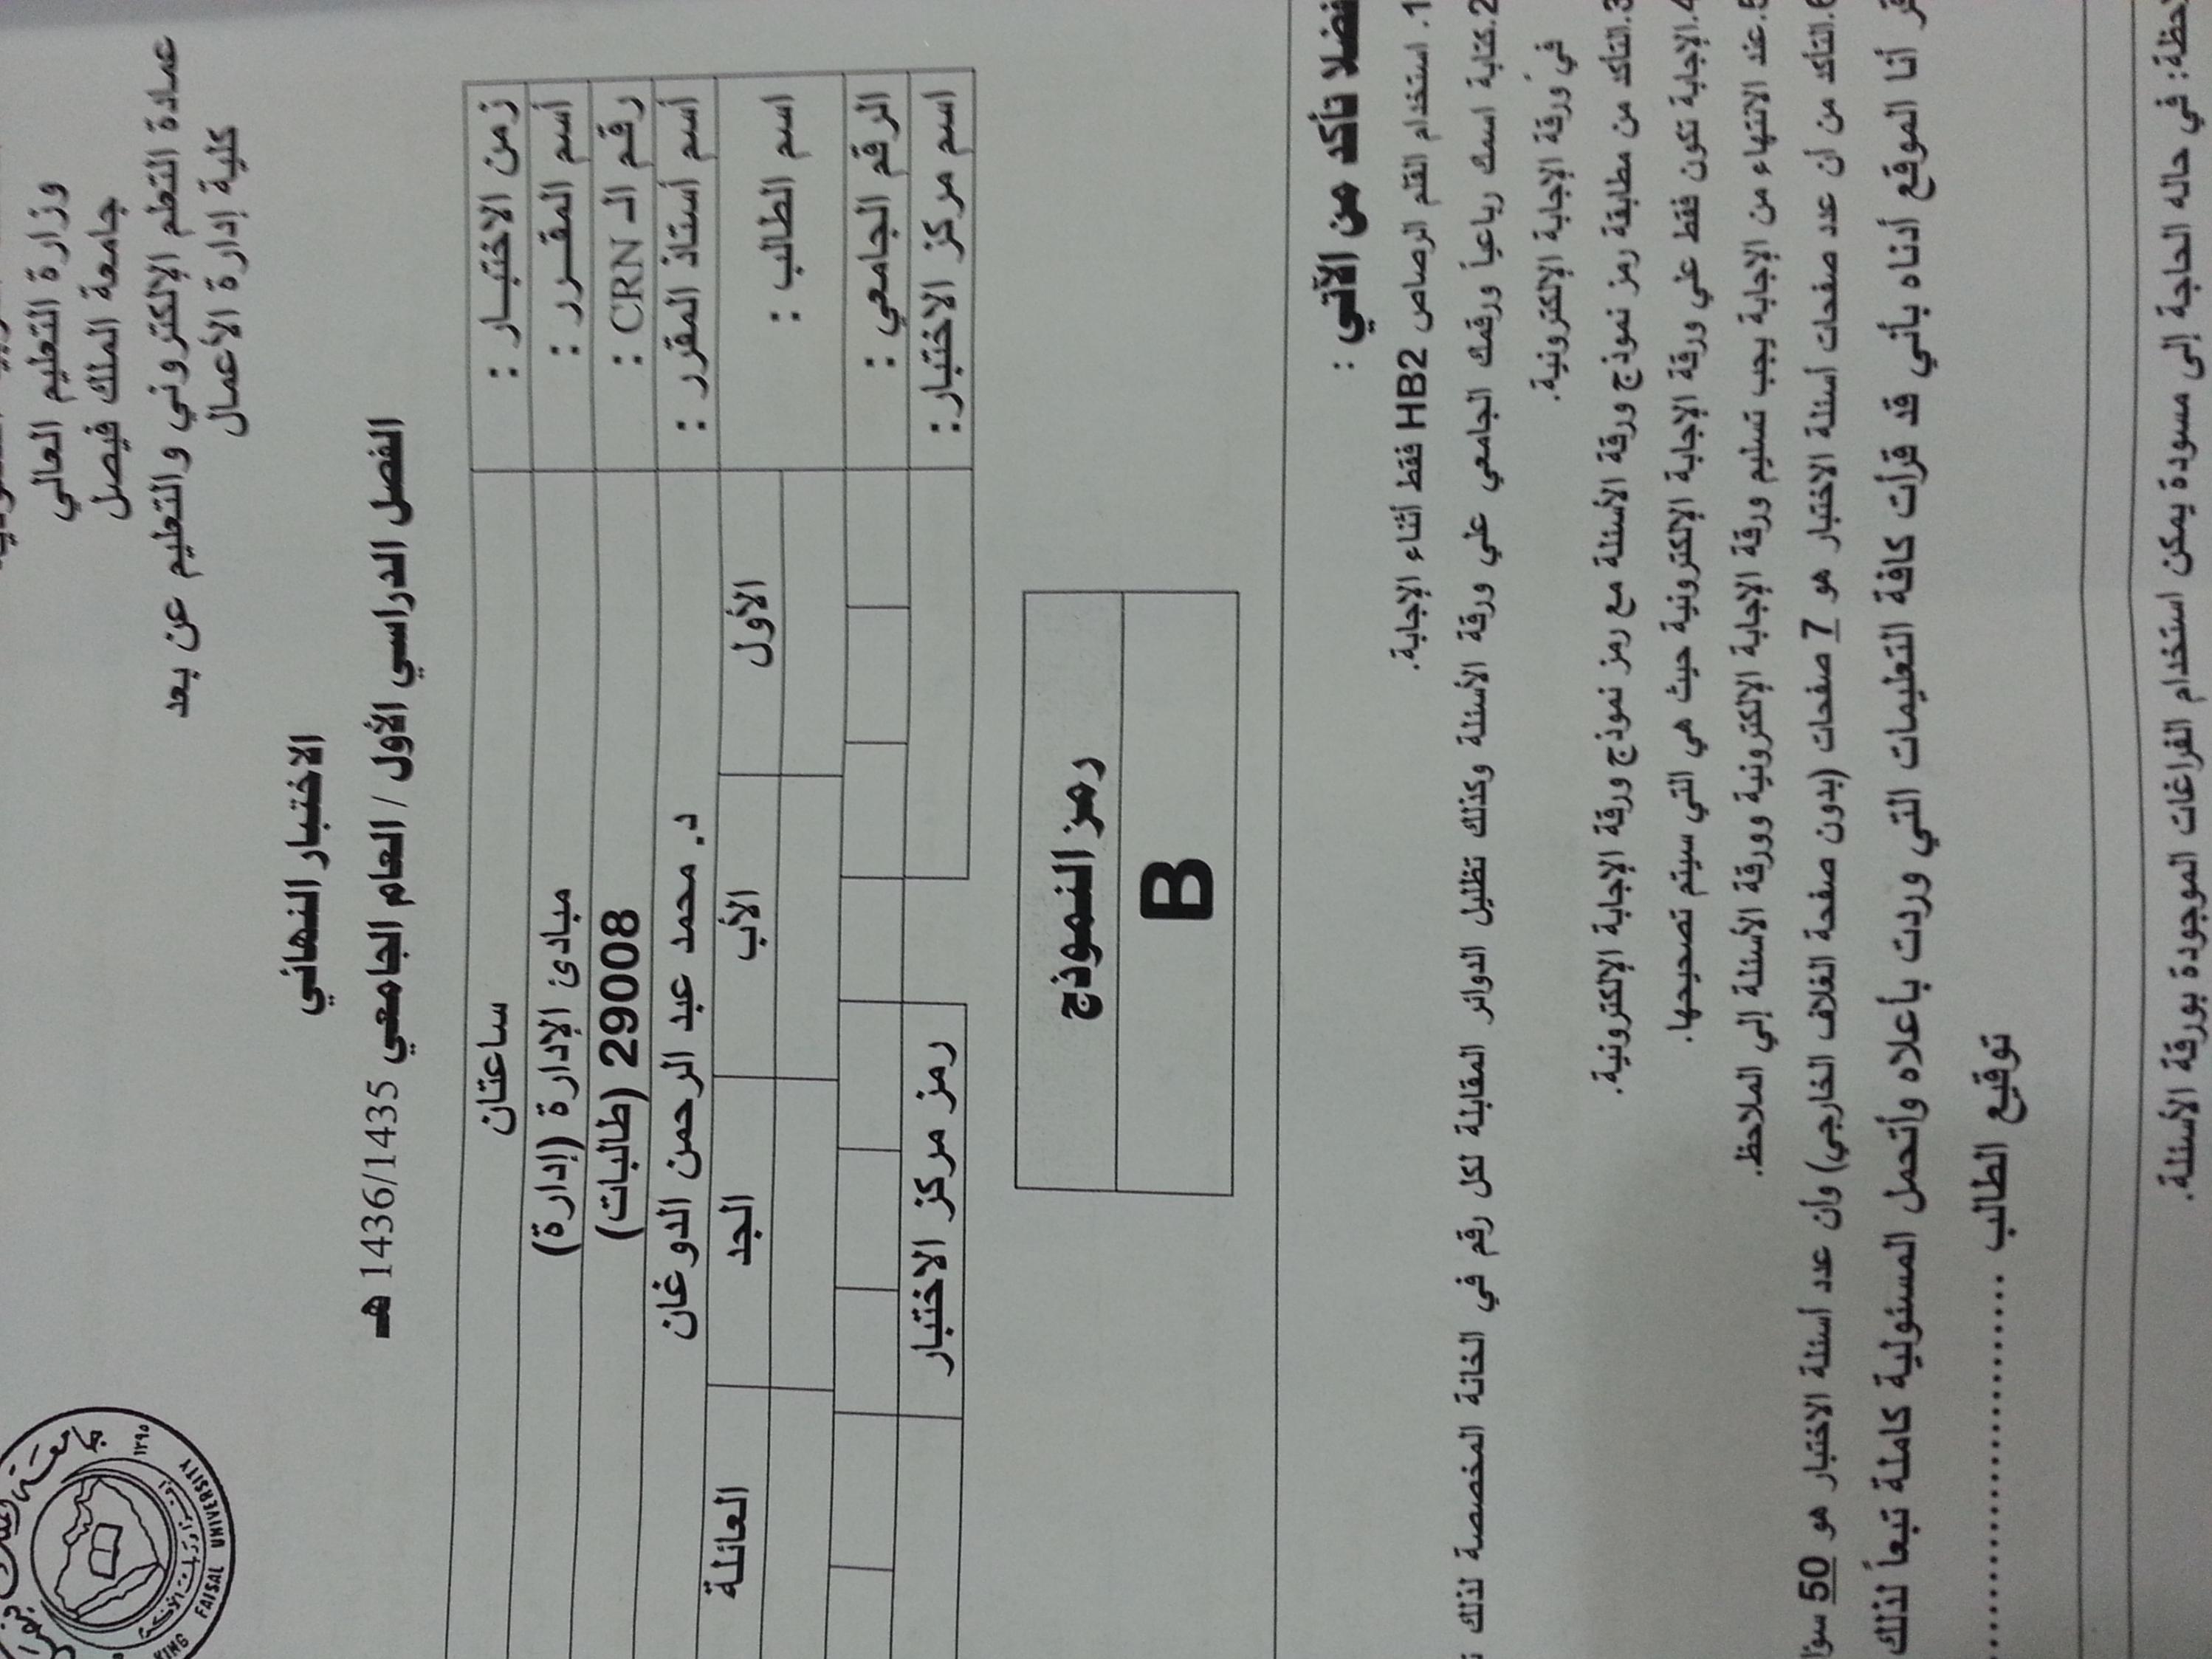 وزارة التعليم العالي
جامعة الملك فيصل
عمادة التعلم الإلكتروني والتعليم عن بعد
كلية إدارة الأعمال
KING FAISAL UNIVERSITY
١٣٩٥
الاختبار النهائي
الفصل الدراسي الأول / العام الجامعي 1436/1435 هـ
زمن الاختبـار : ساعتان
أسم المقـرر : مبادئ الإدارة (إدارة)
رقم الـ CRN : 29008 (طالبات)
أسم أستاذ المقرر : د. محمد عبد الرحمن الدوغان
اسم الطالب : الأول الأب الجد العائلة
الرقم الجامعي :
اسم مركز الاختبار: رمز مركز الاختبار
رمز النموذج
B
فضلا تأكد من الآتي :
1. استخدام القلم الرصاص HB2 فقط أثناء الإجابة.
2.كتابة اسمك رباعياً ورقمك الجامعي علي ورقة الأسئلة وكذلك تظليل الدوائر المقابلة لكل رقم في الخانة المخصصة لذلك
في ورقة الإجابة الإلكترونية.
3.التأكد من مطابقة رمز نموذج ورقة الأسئلة مع رمز نموذج ورقة الإجابة الإلكترونية.
4.الإجابة تكون فقط علي ورقة الإجابة الإلكترونية حيث هي التي سيتم تصحيحها.
5.عند الانتهاء من الإجابة يجب تسليم ورقة الإجابة الإلكترونية وورقة الأسئلة إلي الملاحظ.
6.التأكد من أن عدد صفحات أسئلة الاختبار هو 7 صفحات (بدون صفحة الغلاف الخارجي) وأن عدد أسئلة الاختبار هو 50
أنا الموقع أدناه بأني قد قرأت كافة التعليمات التي وردت بأعلاه وأتحمل المسئولية كاملة تبعاً لذلك
توقيع الطالب ..............................
في حاله الحاجة إلى مسودة يمكن استخدام الفراغات الموجودة بورقة الأسئلة.